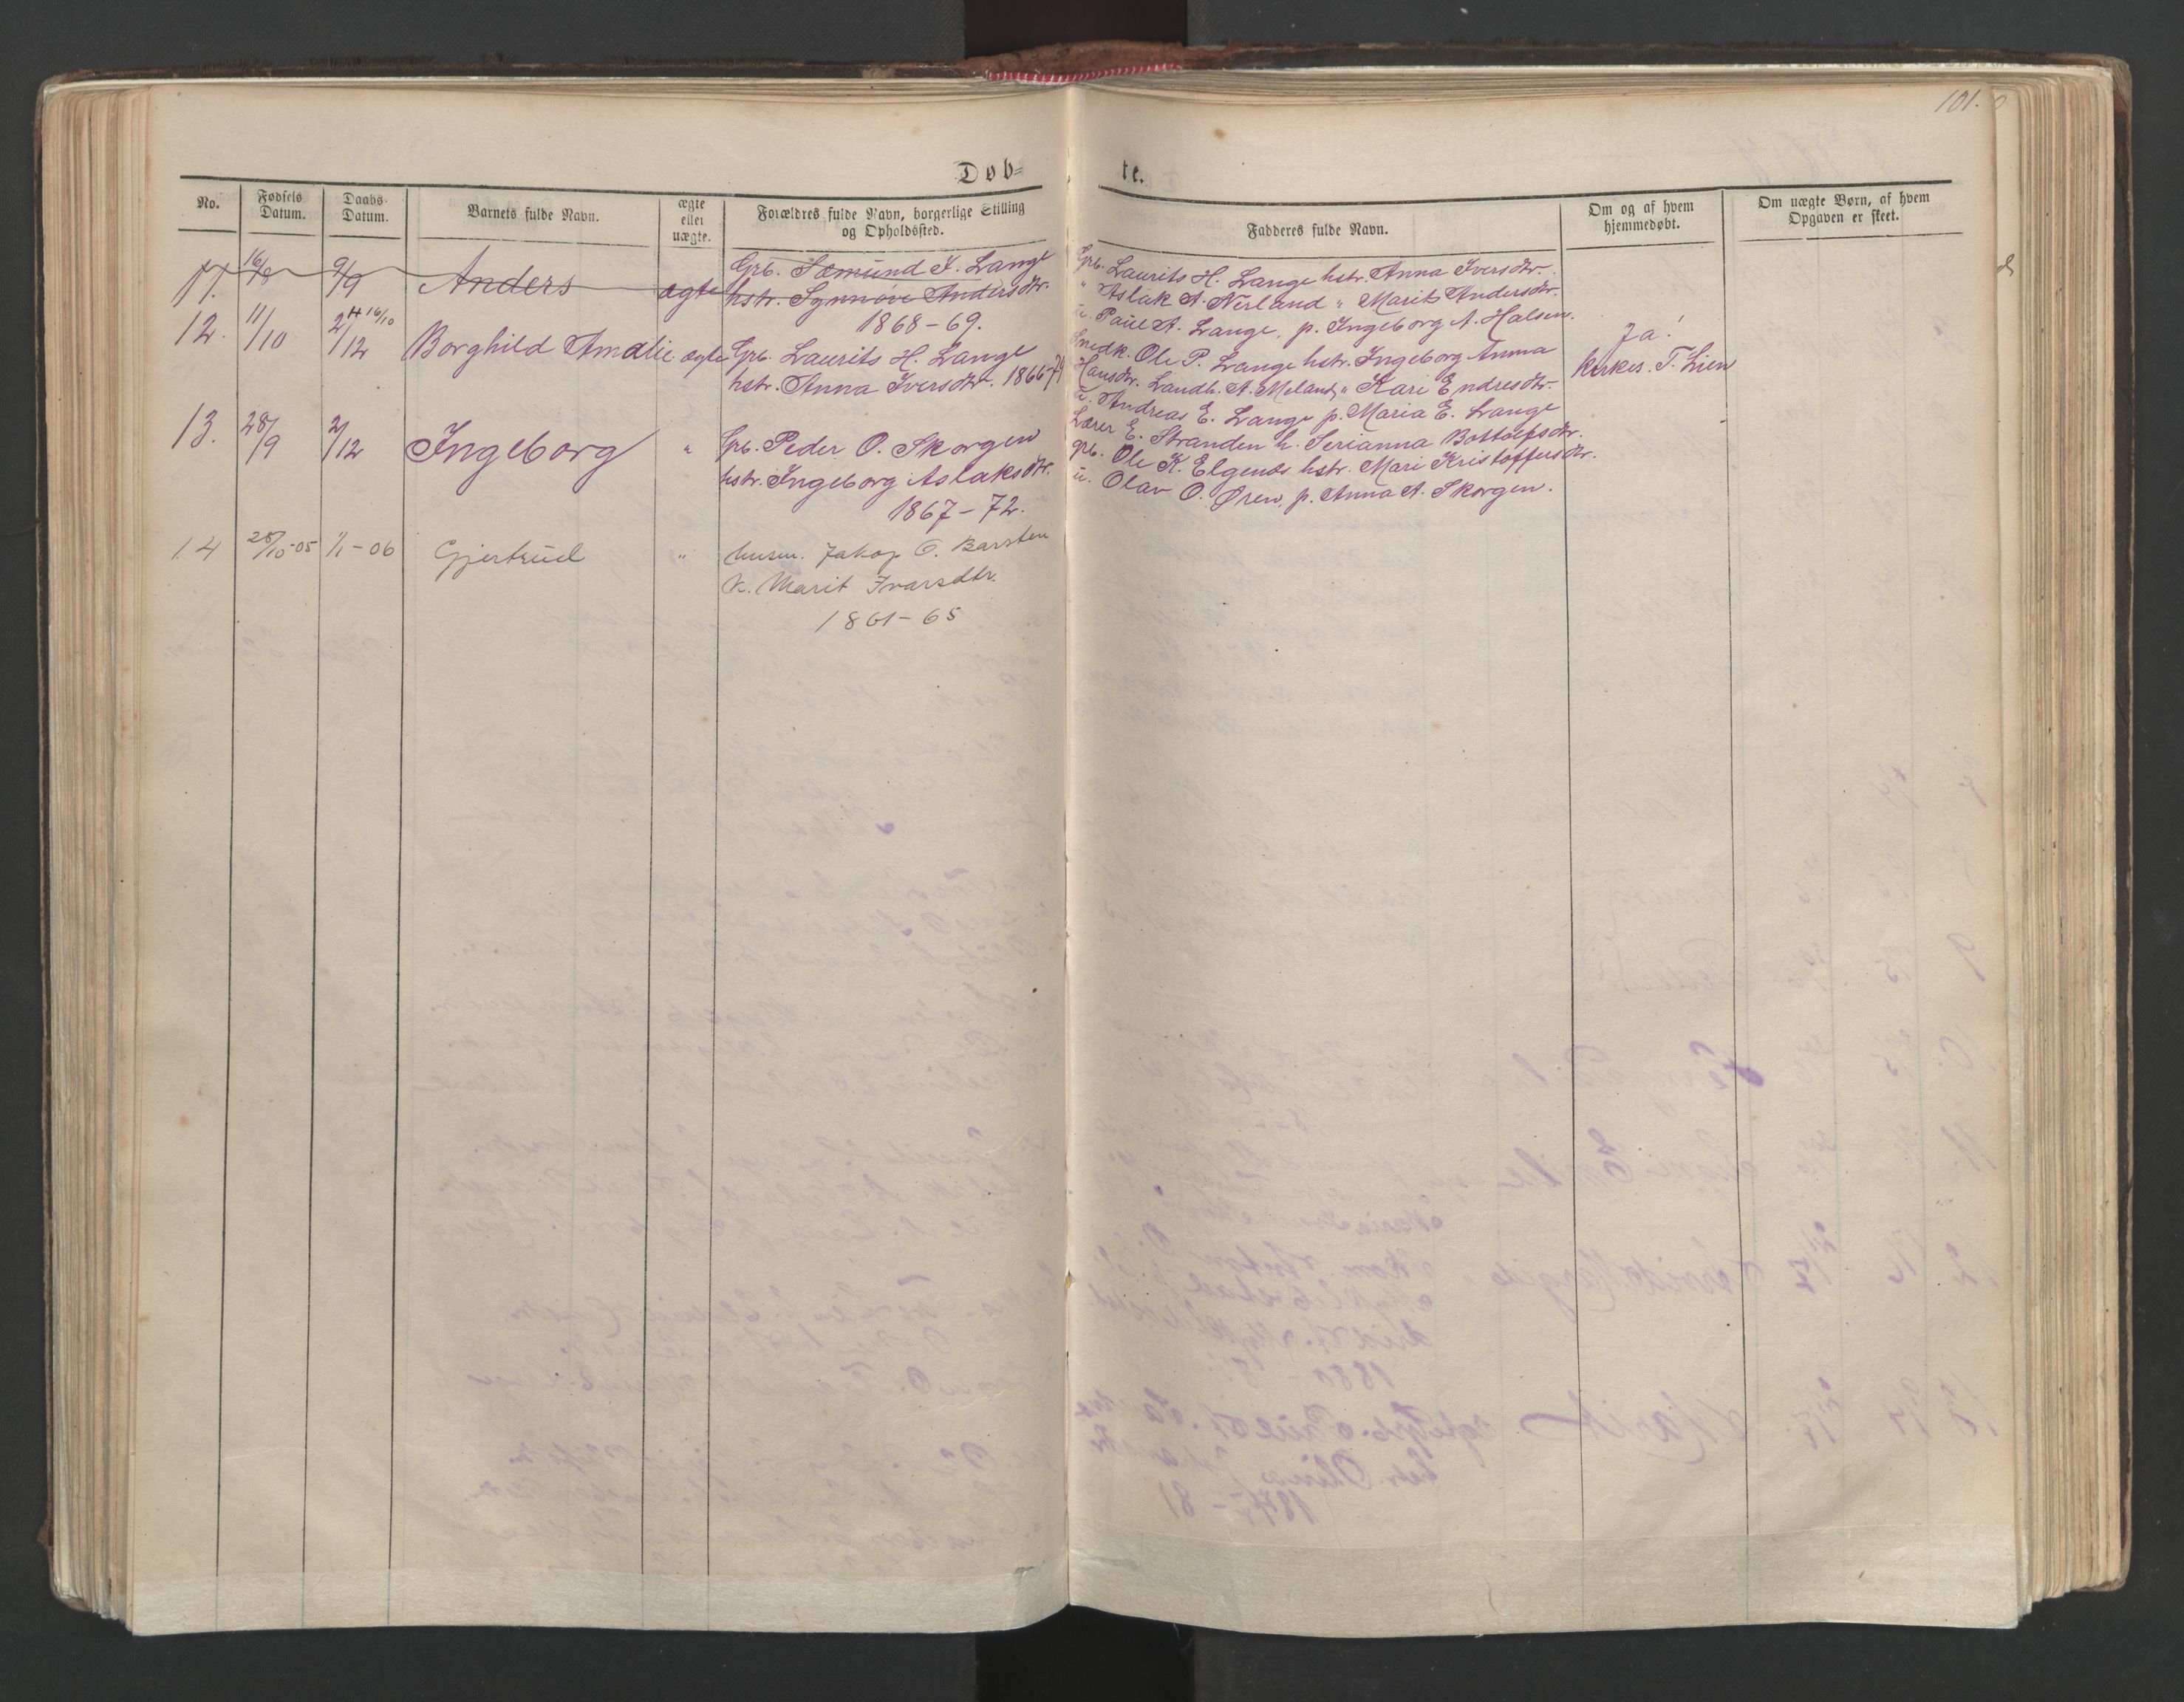 101.
Døb=
te.
No.
Fødsels Datum.
Daabs- Datum.
Barnets fulde Navn.
ægte eller uægte.
Forældres fulde Navn, borgerlige Stilling og Opholdssted.
Fadderes fulde Navn.
Om og af hvem hjemmedøbt.
Om uægte Børn, af hvem Opgaven er skeet.
11. 16/8 9/9 Anders ægte Grb. Sæmund I. Lange
hstr. Synnøve Andersdtr.
1868-69.
Grb. Laurits H. Lange hstr. Anna Iversdtr.
" Aslak A. Nerland " Marit Andersdtr.
u. Paul A. Lange, p. Ingeborg A. Halsen.
12. 11/10 2/12 H 16/10 Borghild Amalie ægte Grb. Laurits H. Lange
hstr. Anna Iversdtr. 1866-
Snedk. Ole P. Lange hstr. Ingeborg Anna
Hansdtr. Landh. A. Meland, " Kari Endresdtr.
u. Andreas E. Lange p. Maria E. Lange
Ja!
kirkes. T. Lien
13. 28/9 2/12 Ingeborg " Grb. Peder O. Skorgen
hstr. Ingeborg Aslaksdtr.
1867-72.
Lærer E. Stranden h. Serianna Bottolfsdtr.
grb. Ole K. Elgenes hstr. Mari Kristoffersdtr.
u. Olav O. Øren, p. Anna A. Skorgen.
14 28/10-05 1/1-06 Gjertrud " husm. Jakop O. Barsten
k. Marit Ivarsdtr.
1861-65